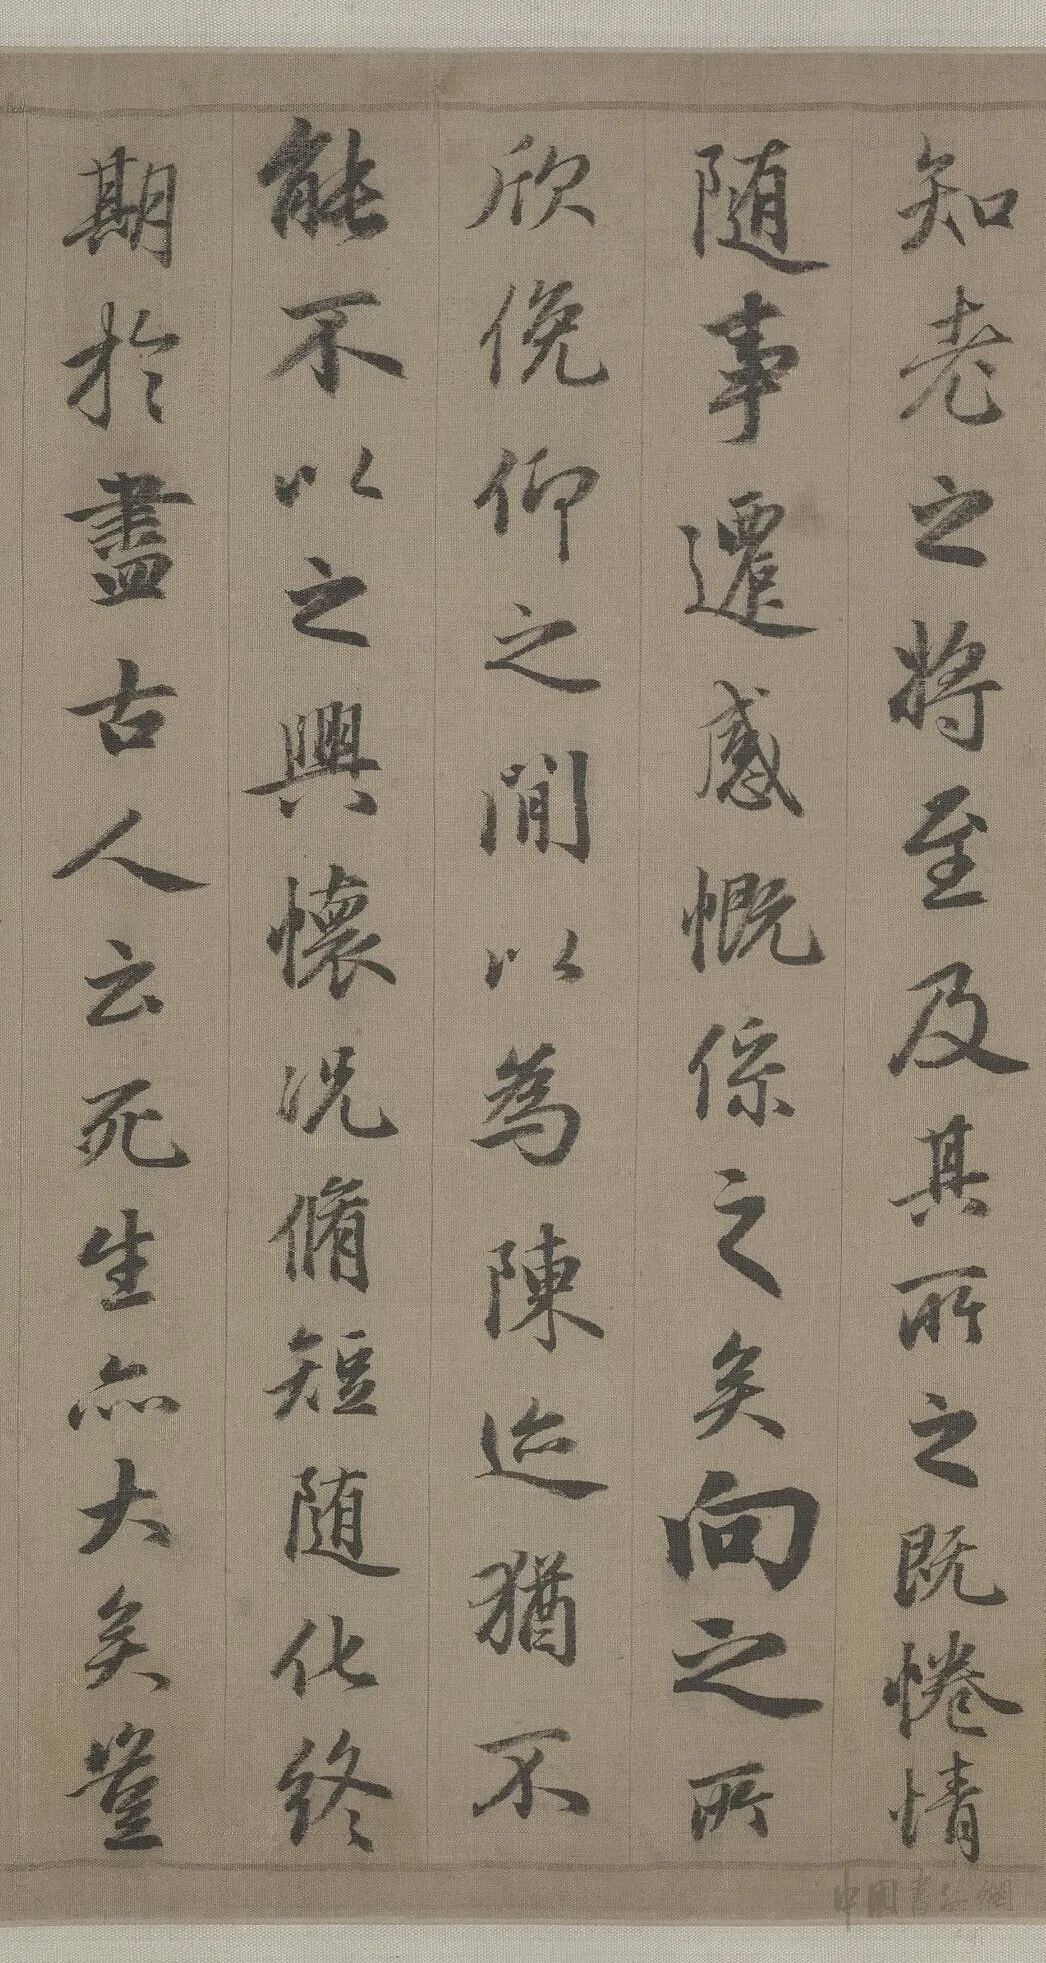 知老之将至及其所之既惓情
随事遷感慨係之矣向之所
欣俛仰之間以為陳迹猶不
能不以之興懷况脩短随化終
期於盡古人云死生亦大矣豈
中國書法網